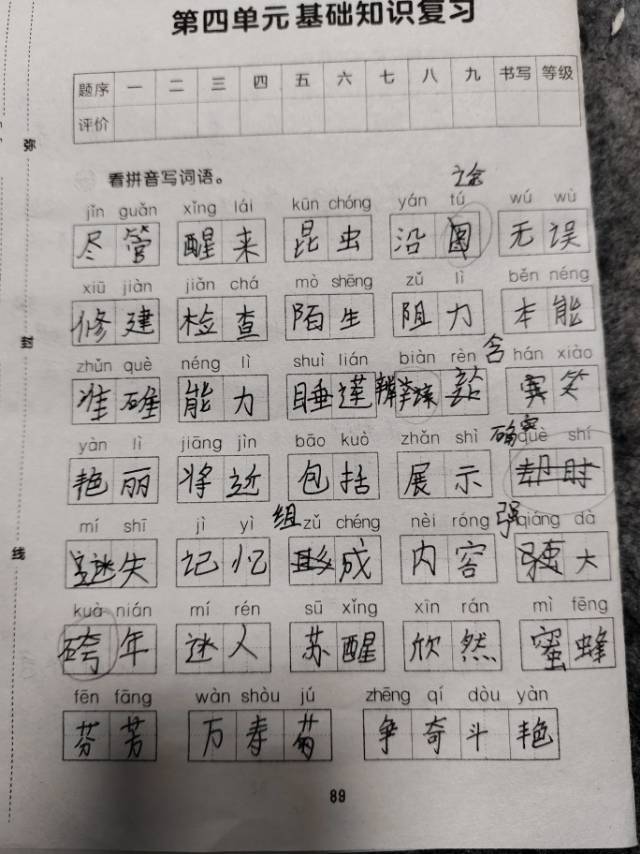 第四单元基础知识复习
题序 一 二 三 四 五 六 七 八 九 书写 等级
评价
弥
封
线
看拼音写词语。
途
jǐn guǎn xǐng lái kūn chóng yán tú wú wù
尽管 醒来 昆虫 沿图 无误
xiū jiàn jiǎn chá mò shēng zǔ lì běn néng
修建 检查 陌生 阻力 本能
zhǔn què néng lì shuì lián biàn rèn hán xiào
准确 能力 睡莲 辨 含 笑
yàn lì jiāng jìn bāo kuò zhǎn shì què shí
艳丽 将近 包括 展示 确实 却时
mí shī jì yì zǔ chéng nèi róng qiáng dà
迷失 记忆 组 成 内容 强 大
kuà nián mí rén sū xǐng xīn rán mì fēng
砖年 迷人 苏醒 欣然 蜜蜂
fēn fāng wàn shòu jú zhēng qí dòu yàn
芬芳 万寿菊 争奇斗艳
89